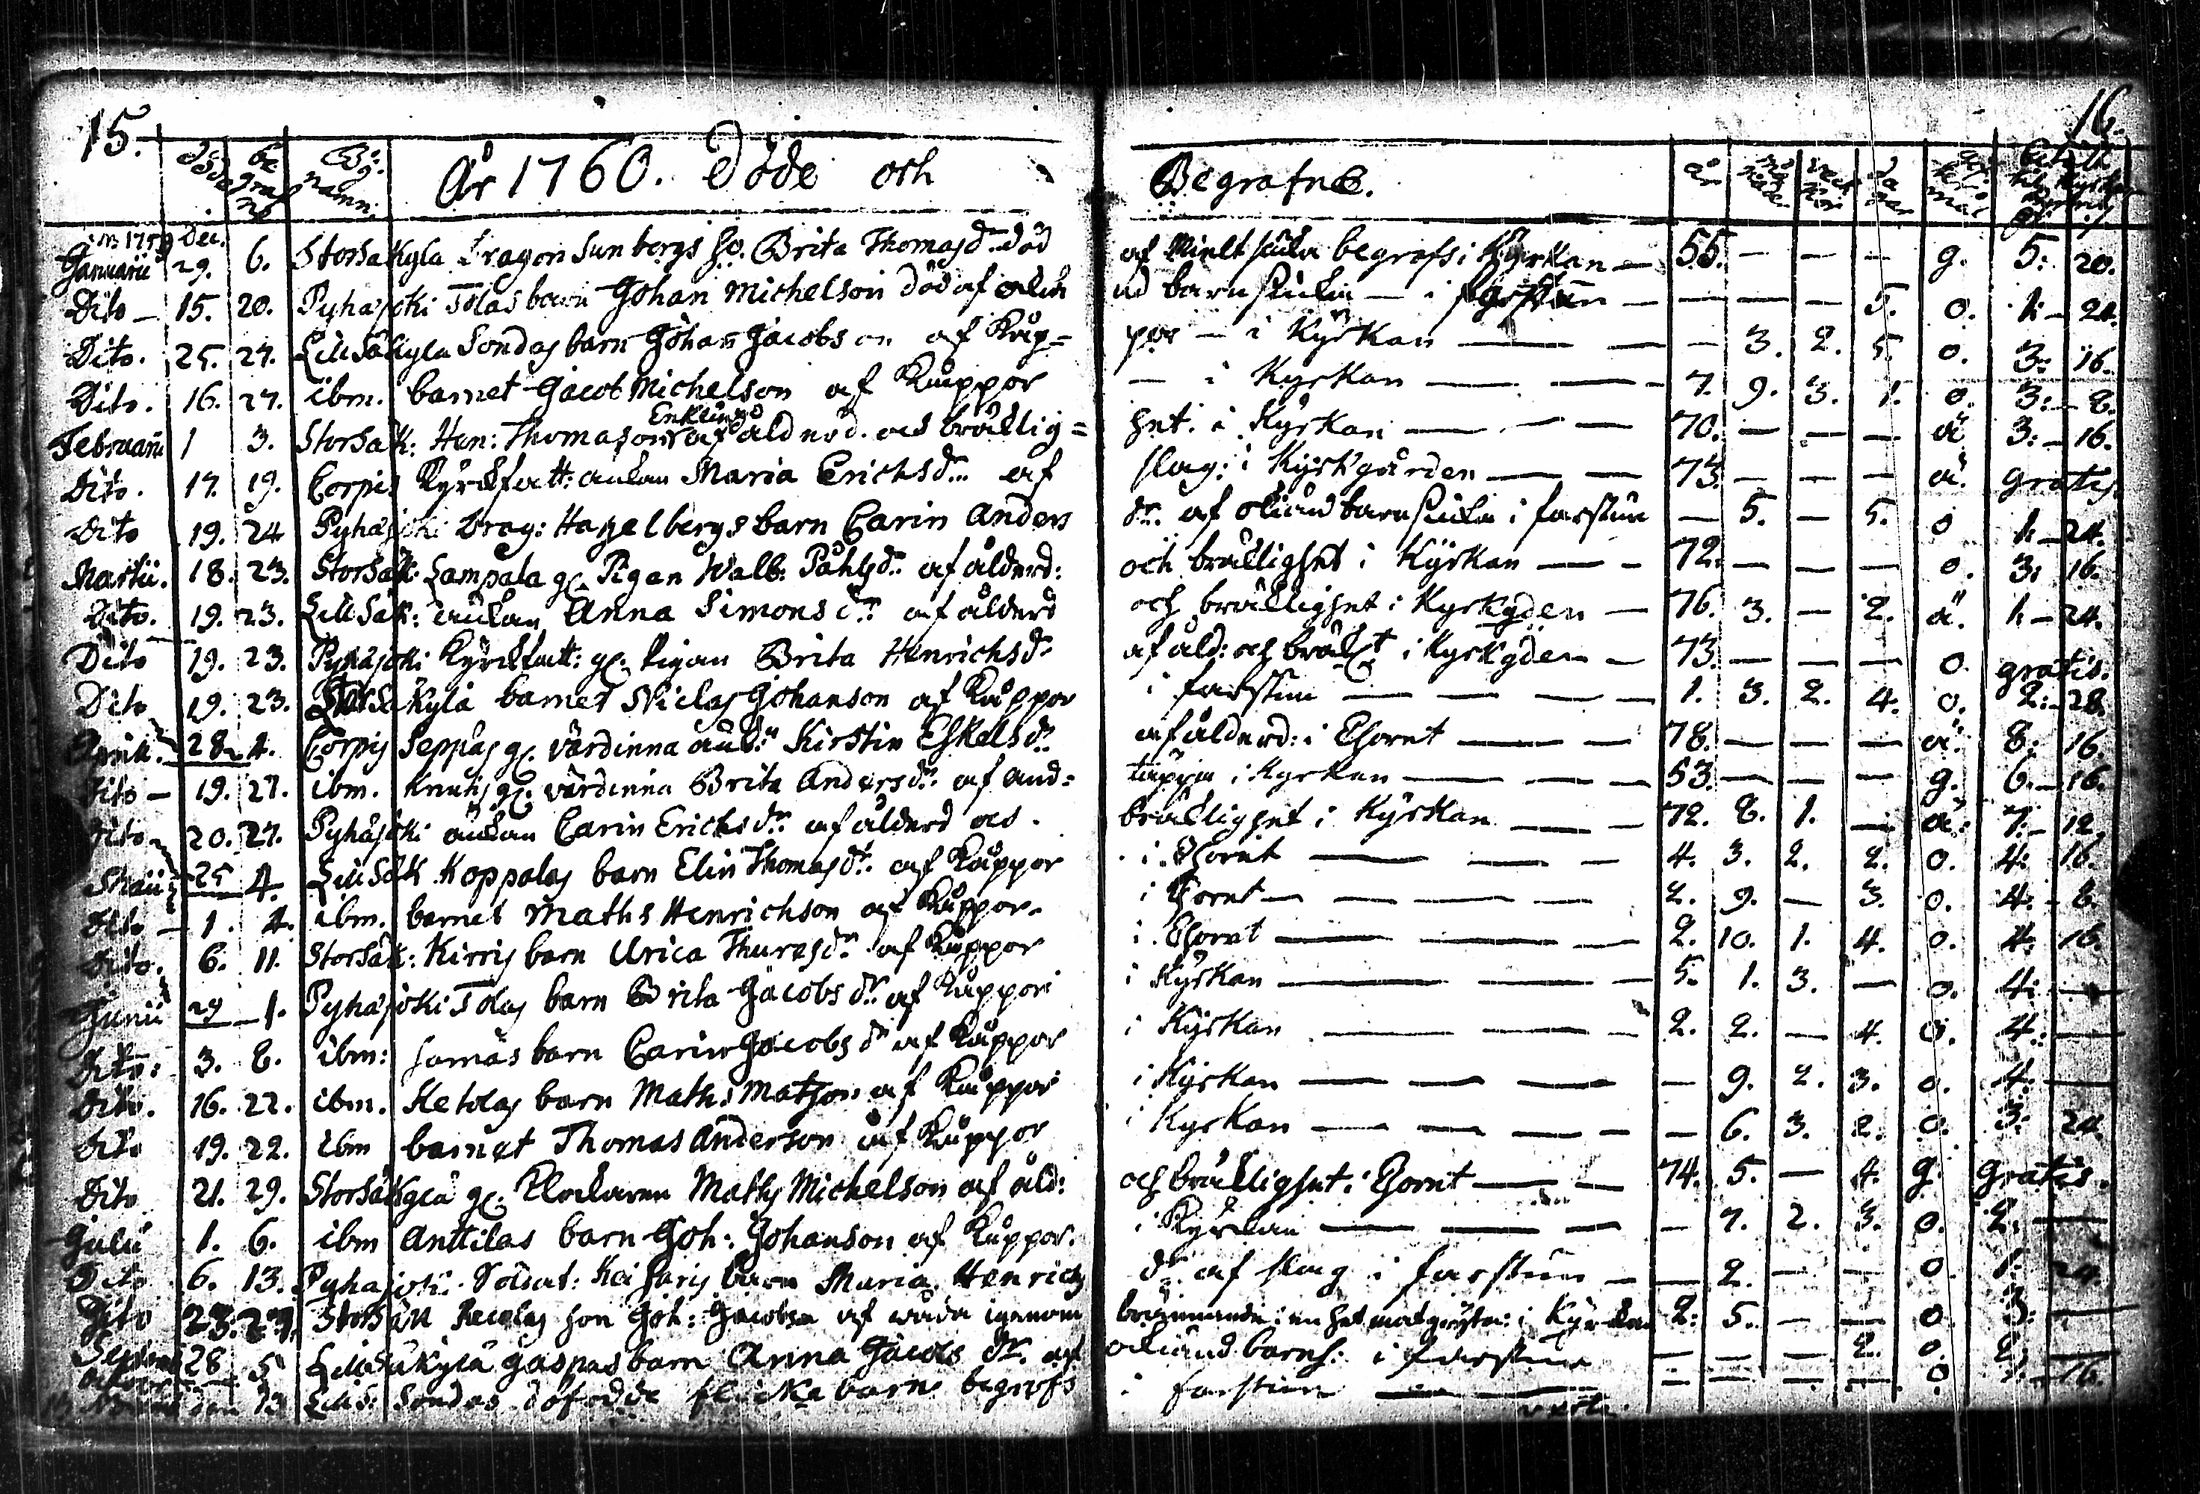 15. 16.
Döde be grafne By: namn. År 1760. Döde och Begrafne. år må nade vec kor da gar
1759 Dec.
Januarii 29. 6. Storsäkyla Dragon Sunbergs hu. Brita Thomasdr död af begrofs i Kyrkan — 55. — — — g. 5: 20.
Dito — 15. 20. Pyhäjoki Tolas barn Johan Michelson död af okiänd barnsiuka — i — — — — 5. o. 1: — 20.
Dito. 25. 27. Lillsäkyla Sondas barn Johan Jacobson af Kuppor — i Kyrkan — — — 3. 2. 5 o. 3: 16.
Dito. 16. 27. ibm. barnet Jacob Michelson af Kuppor — i Kyrkan — — 7. 9. 3. 1. o. 3: — 8.
Februarii 1 3. Storsäk: Hen: Thomason Enkling af ålderd. och bräcklighet. i Kyrkan — — — 70. — — — ä 3: — 16.
Dito. 17. 19. Corpis Kyrckfatt: änkan Maria Erichsdr. af slag: i Kyrkgården — — 73. — — — ä. gratis.
Dito 19. 24 Pyhäjoki Drag: Hagelbergs barn Carin Andersdr. af okiänd barnsiuka i farstun — 5. — 5. o 1: — 24.
Martii. 18. 23. Storsäk: Lampala gl. Pigan Walb: Påhlsdr. af ålderd: och bräcklighet i Kyrkan — — 72. — — — o. 3: 16.
Dito. 19. 23. Lillsäk: änkan Anna Simonsdr. af ålderd och bräcklighet i Kyrkgden — 76. 3. — 2. ä. 1: — 24.
Dito 19. 23. Pyhäjoki Kyrckfatt: gl. Pigan Brita Henrichsdr af åld: och bräckl:t i Kyrkgden — 73. — — — o. gratis.
Dito 19. 23. Storsäkyla barnet Niclas Johanson af Kuppor i farstun — — — — 1. 3. 2. 4. o. 2: — 28.
April. 28. 4. Corpis Seppäs gl. värdinna änk:n Kirstin Eskelsdr. af ålderd: i Choret — — — 78. — — — ä. 8: 16.
Dito — 19. 27. ibm. Knutis gl. värdinna Brita Andersdr. af andtäppa i Kyrkan — — — — 53. — — — g. 6: — 16.
Dito — 20. 27. Pyhäjoki änkan Carin Erichsdr. af ålderd och bräcklighet i Kyrkan — — 72. 8. 1. — ä. 7: — 12.
Maii 25 4. Lillsäk Koppalas barn Elin Thomasdr. af Kuppor i Choret — — — 4. 3. 2. 2. o. 4: 16.
Dito — 1. 4. ibm. barnet Maths Henrichson af Kuppor. i Choret — — — — 2. 9. — 3. o. 4: — 8.
Dito. 6. 11. Storsäk: Kirris barn Ulrica Thuresdr. af Kuppor i Choret — — — 2. 10. 1. 4. o. 4: 16.
Junii 29 1. Pyhäjoki Tolas barn Brita Jacobsdr. af Kuppor i Kyrkan — — — 5. 1. 3. — o. 4: —
Dito: 3. 8. ibm: barn Carin Jacobsdr af Kuppor i Kyrkan — — — 2. 2. — 4. o. 4: —
Dito. 16. 22. ibm. Ketolas barn Maths Matson af Kuppor i Kyrkan — — — — 9. 2. 3. o. 4: —
Dito 19. 22. ibm barnet Thomas Anderson af Kuppor i Kyrkan — — — — — 6. 3. 2. o. 3: 24.
Dito 21. 29. Storsäkyla gl. Klockaren Maths Michelson af åld: och bräcklighet i Choret — — 74. 5. — 4. g. Gratis.
Julii 1. 6. ibm Anttilas barn Joh: Johanson af Kuppor. i Kyrckan — — — — 7. 2. 3. o. 2: —
Dito 6. 13. Pyhäjoki. Soldat: barn Maria Henrichsdr. af slag i farstun — — 2. — — o. 1: 24.
Dito 23. 27. Storsäk son Joh: Jacobson af wåda igenom brännande i en het matgryta: i Kyrckan 2: 5. — — o. 3: —
28 5 Lillsäkylä Gaspas barn Anna Jacobsdr. af okiänd barns: i farstun — — — 2. o. 2: —
13 Lills: Sondas dödfödde flicka barn begrofs i farstun — — — — — — o. 16.
verte.